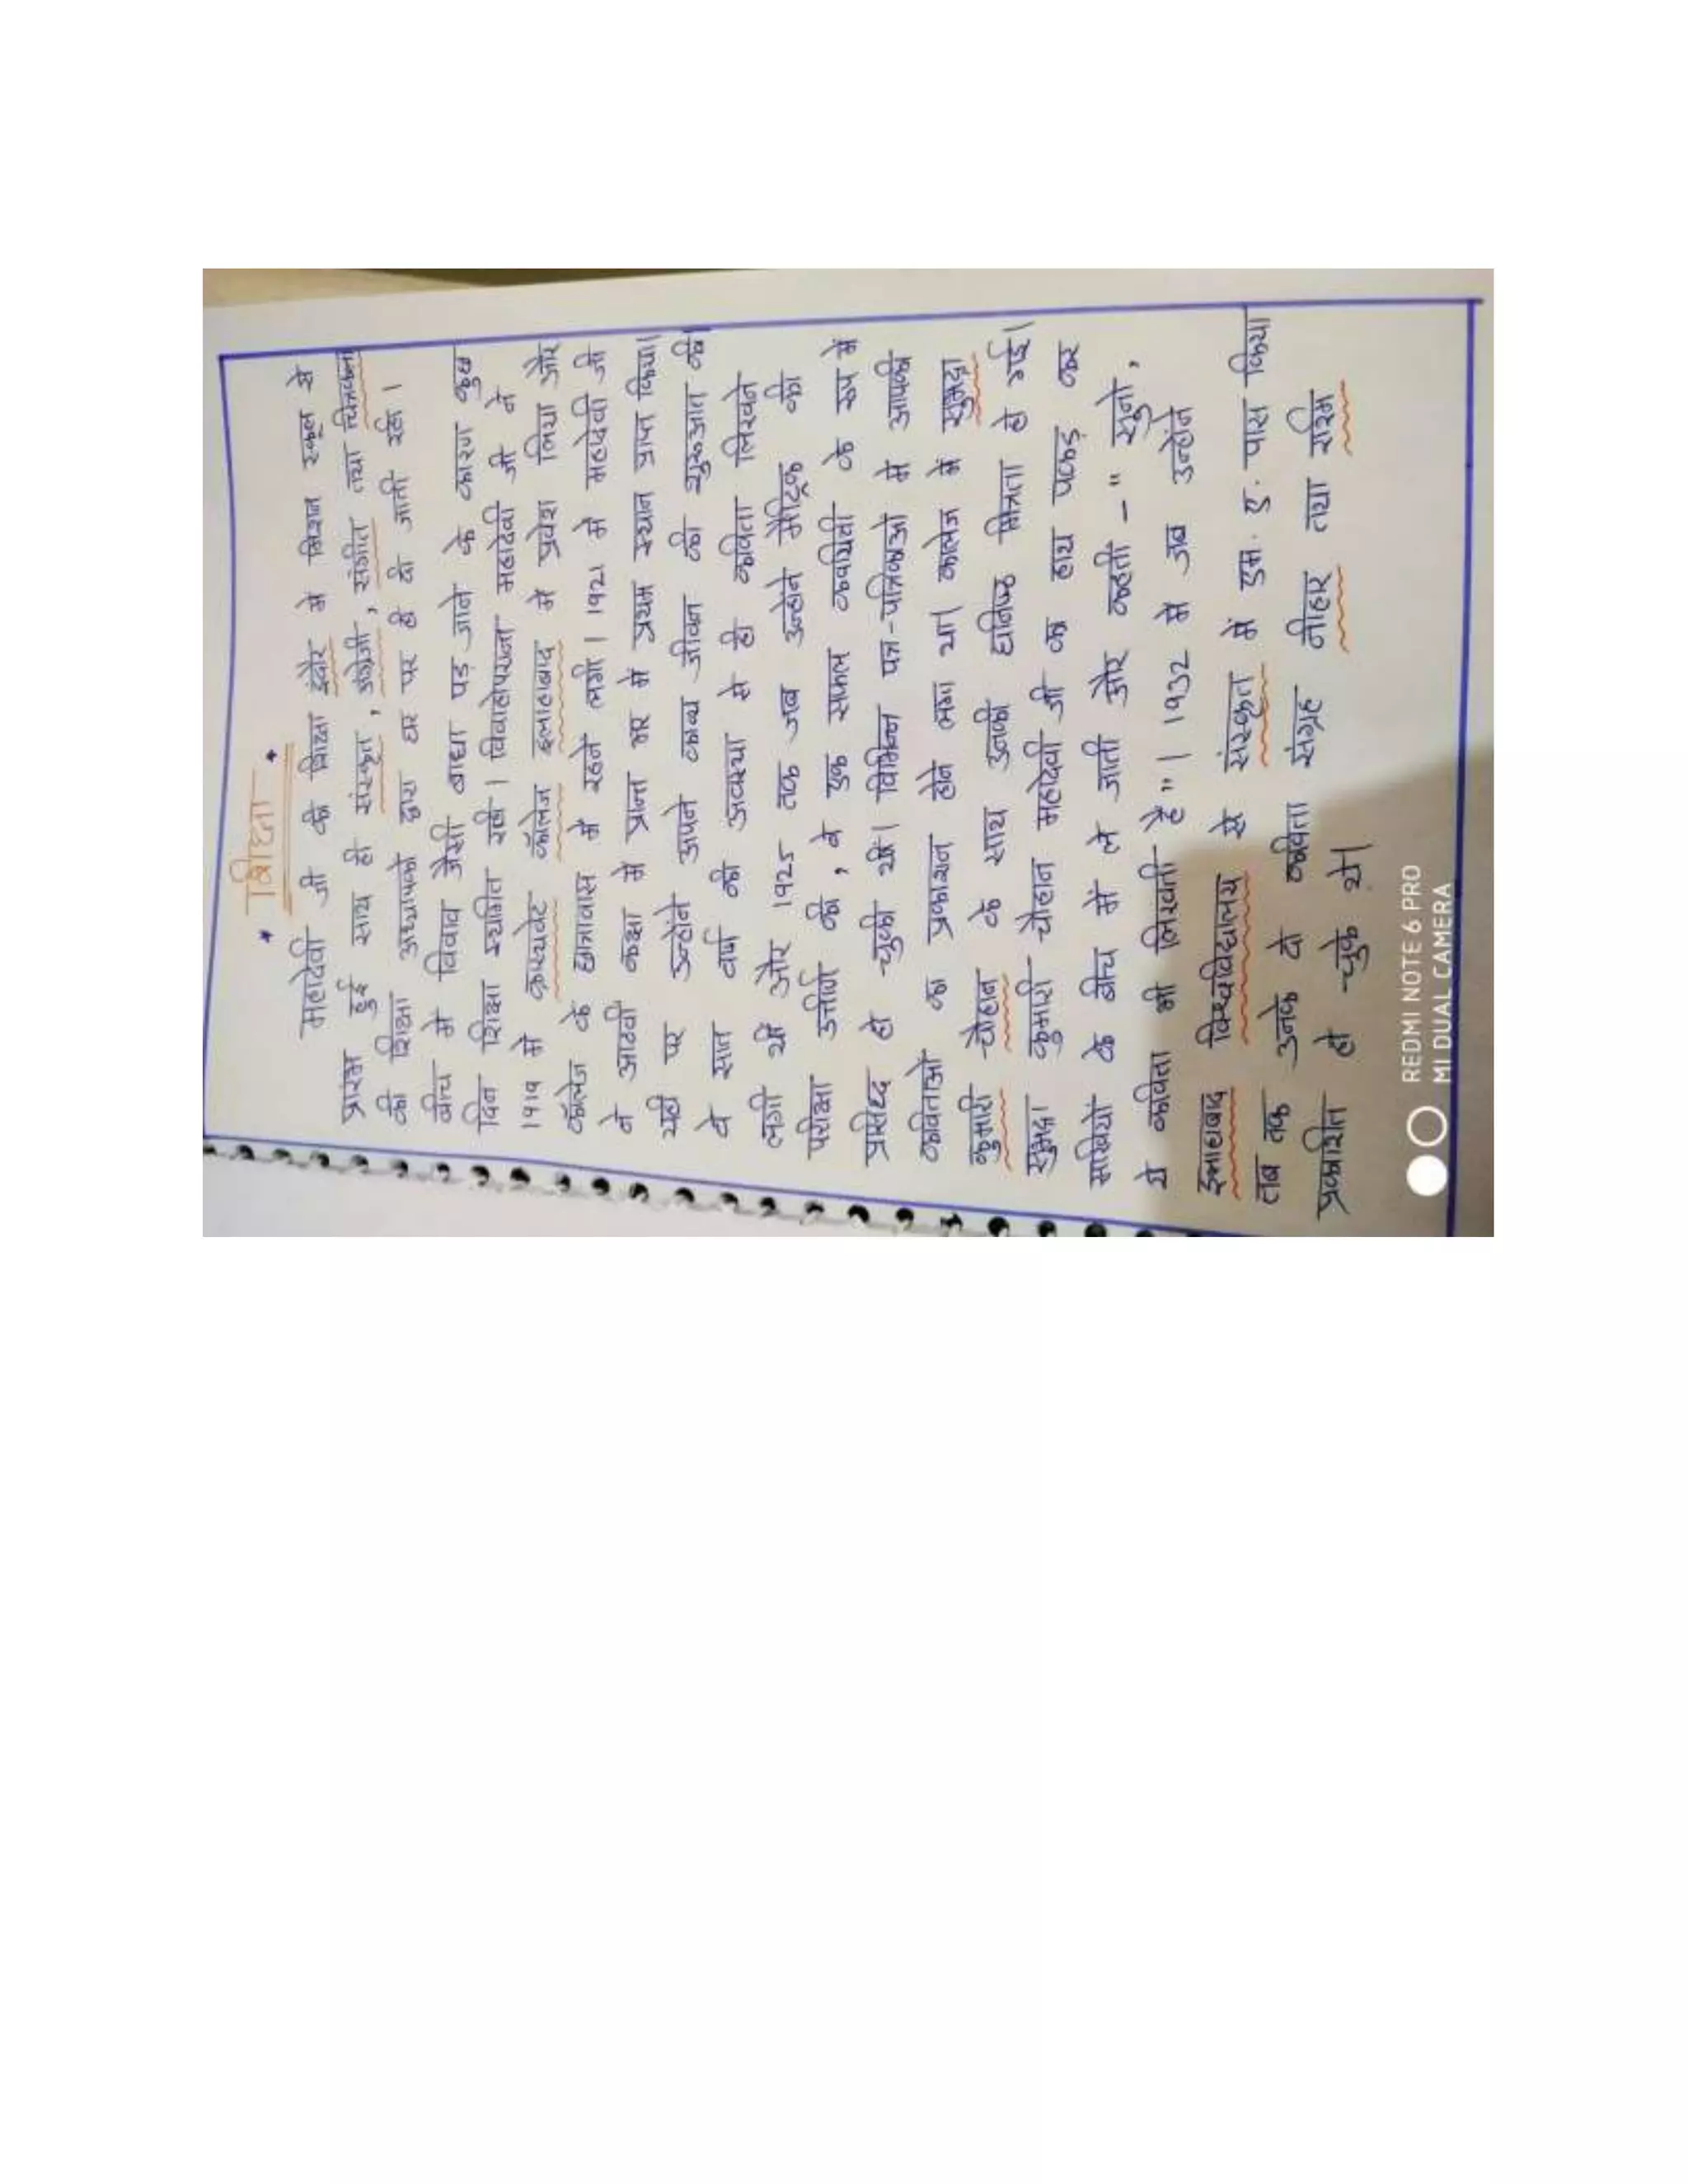 * शिक्षा *
महादेवी जी की शिक्षा इंदौर में मिशन स्कूल से
प्रारंभ हुई साथ ही संस्कृत, अंग्रेजी, संगीत तथा चित्रकला
की शिक्षा अध्यापकों द्वारा घर पर ही दी जाती रही।
बीच में विवाह जैसी बाधा पड़ जाने के कारण कुछ
दिन शिक्षा स्थगित रही। विवाहोपरान्त महादेवी जी ने
1919 में क्रास्थवेट कॉलेज इलाहाबाद में प्रवेश लिया और
कॉलेज के छात्रावास में रहने लगी। 1921 में महादेवी जी
ने आठवीं कक्षा में प्रान्त भर में प्रथम स्थान प्राप्त किया।
यही पर उन्होंने अपने काव्य जीवन की शुरुआत की।
वे सात वर्ष की अवस्था से ही कविता लिखने
लगी थी और 1925 तक जब उन्होंने मैट्रिक की
परीक्षा उत्तीर्ण की, वे एक सफल कवयित्री के रूप में
प्रसिध्द हो चुकी थीं। विभिन्न पत्र-पत्रिकाओं में आपकी
कविताओं का प्रकाशन होने लगा था। कालेज में सुभद्रा
कुमारी चौहान के साथ उनकी घनिष्ठ मित्रता हो गई।
सुभद्रा कुमारी चौहान महादेवी जी का हाथ पकड़ कर
सखियों के बीच में ले जाती और कहती -" सुनो,
ये कविता भी लिखती है"। 1932 में जब उन्होंने
इलाहाबाद विश्वविद्यालय से संस्कृत में एम. ए. पास किया
तब तक उनके दो कविता संग्रह नीहार तथा रश्मि
प्रकाशित हो चुके थे।
REDMI NOTE 6 PRO
MI DUAL CAMERA